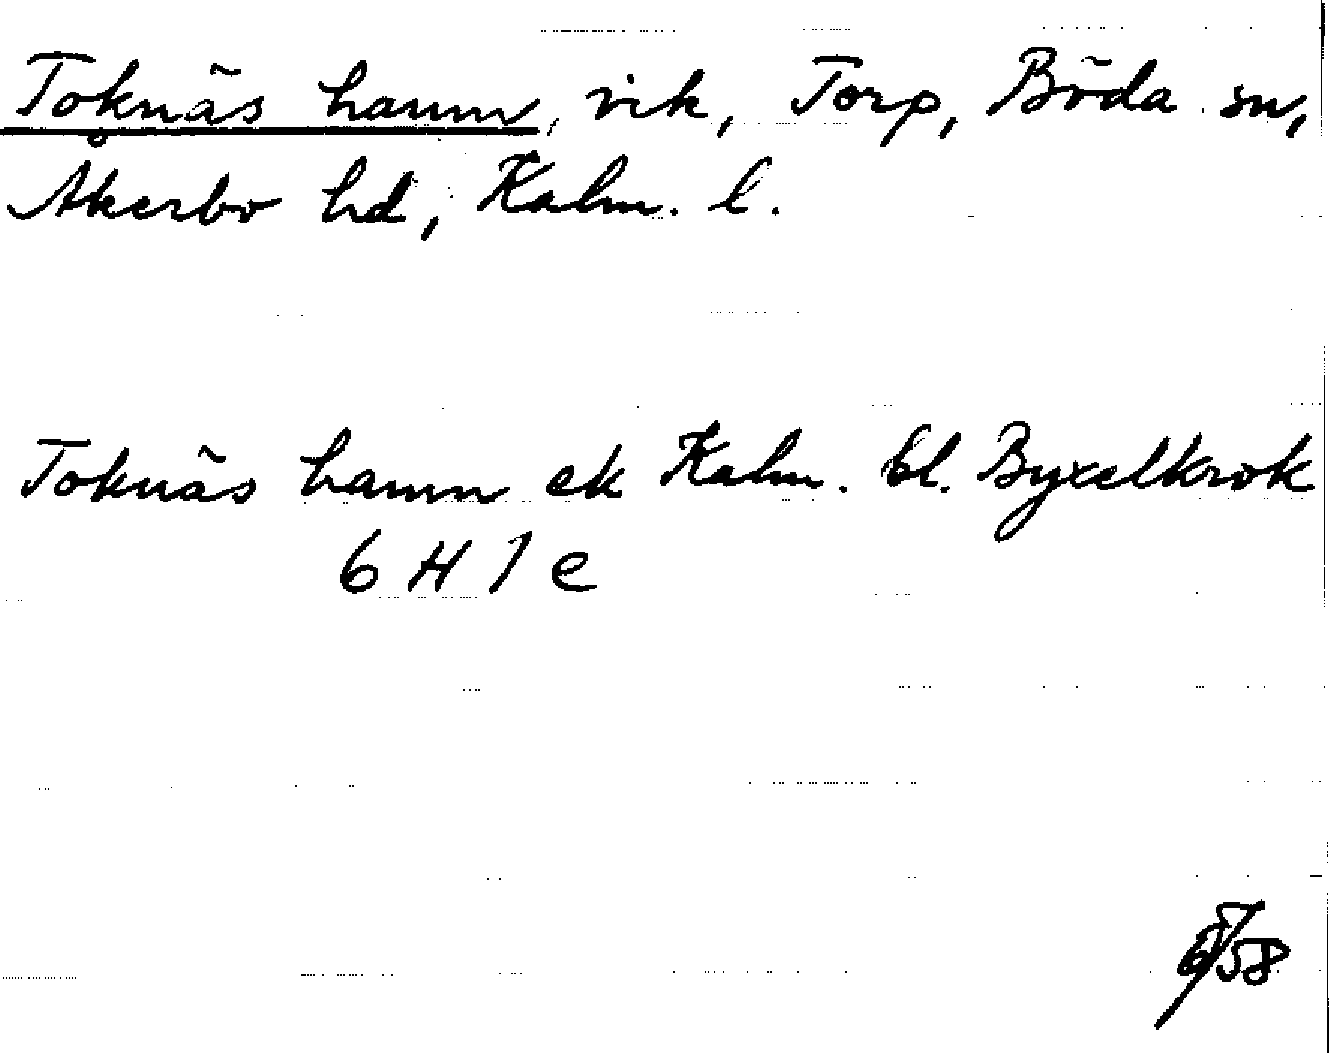 Toknäs hamn, vik, Torp, Böda sn,
Åkerbo hd, Kalm. l.
Toknäs hamn ek Kalm. bl. Byxelkrok
6 H 1 e